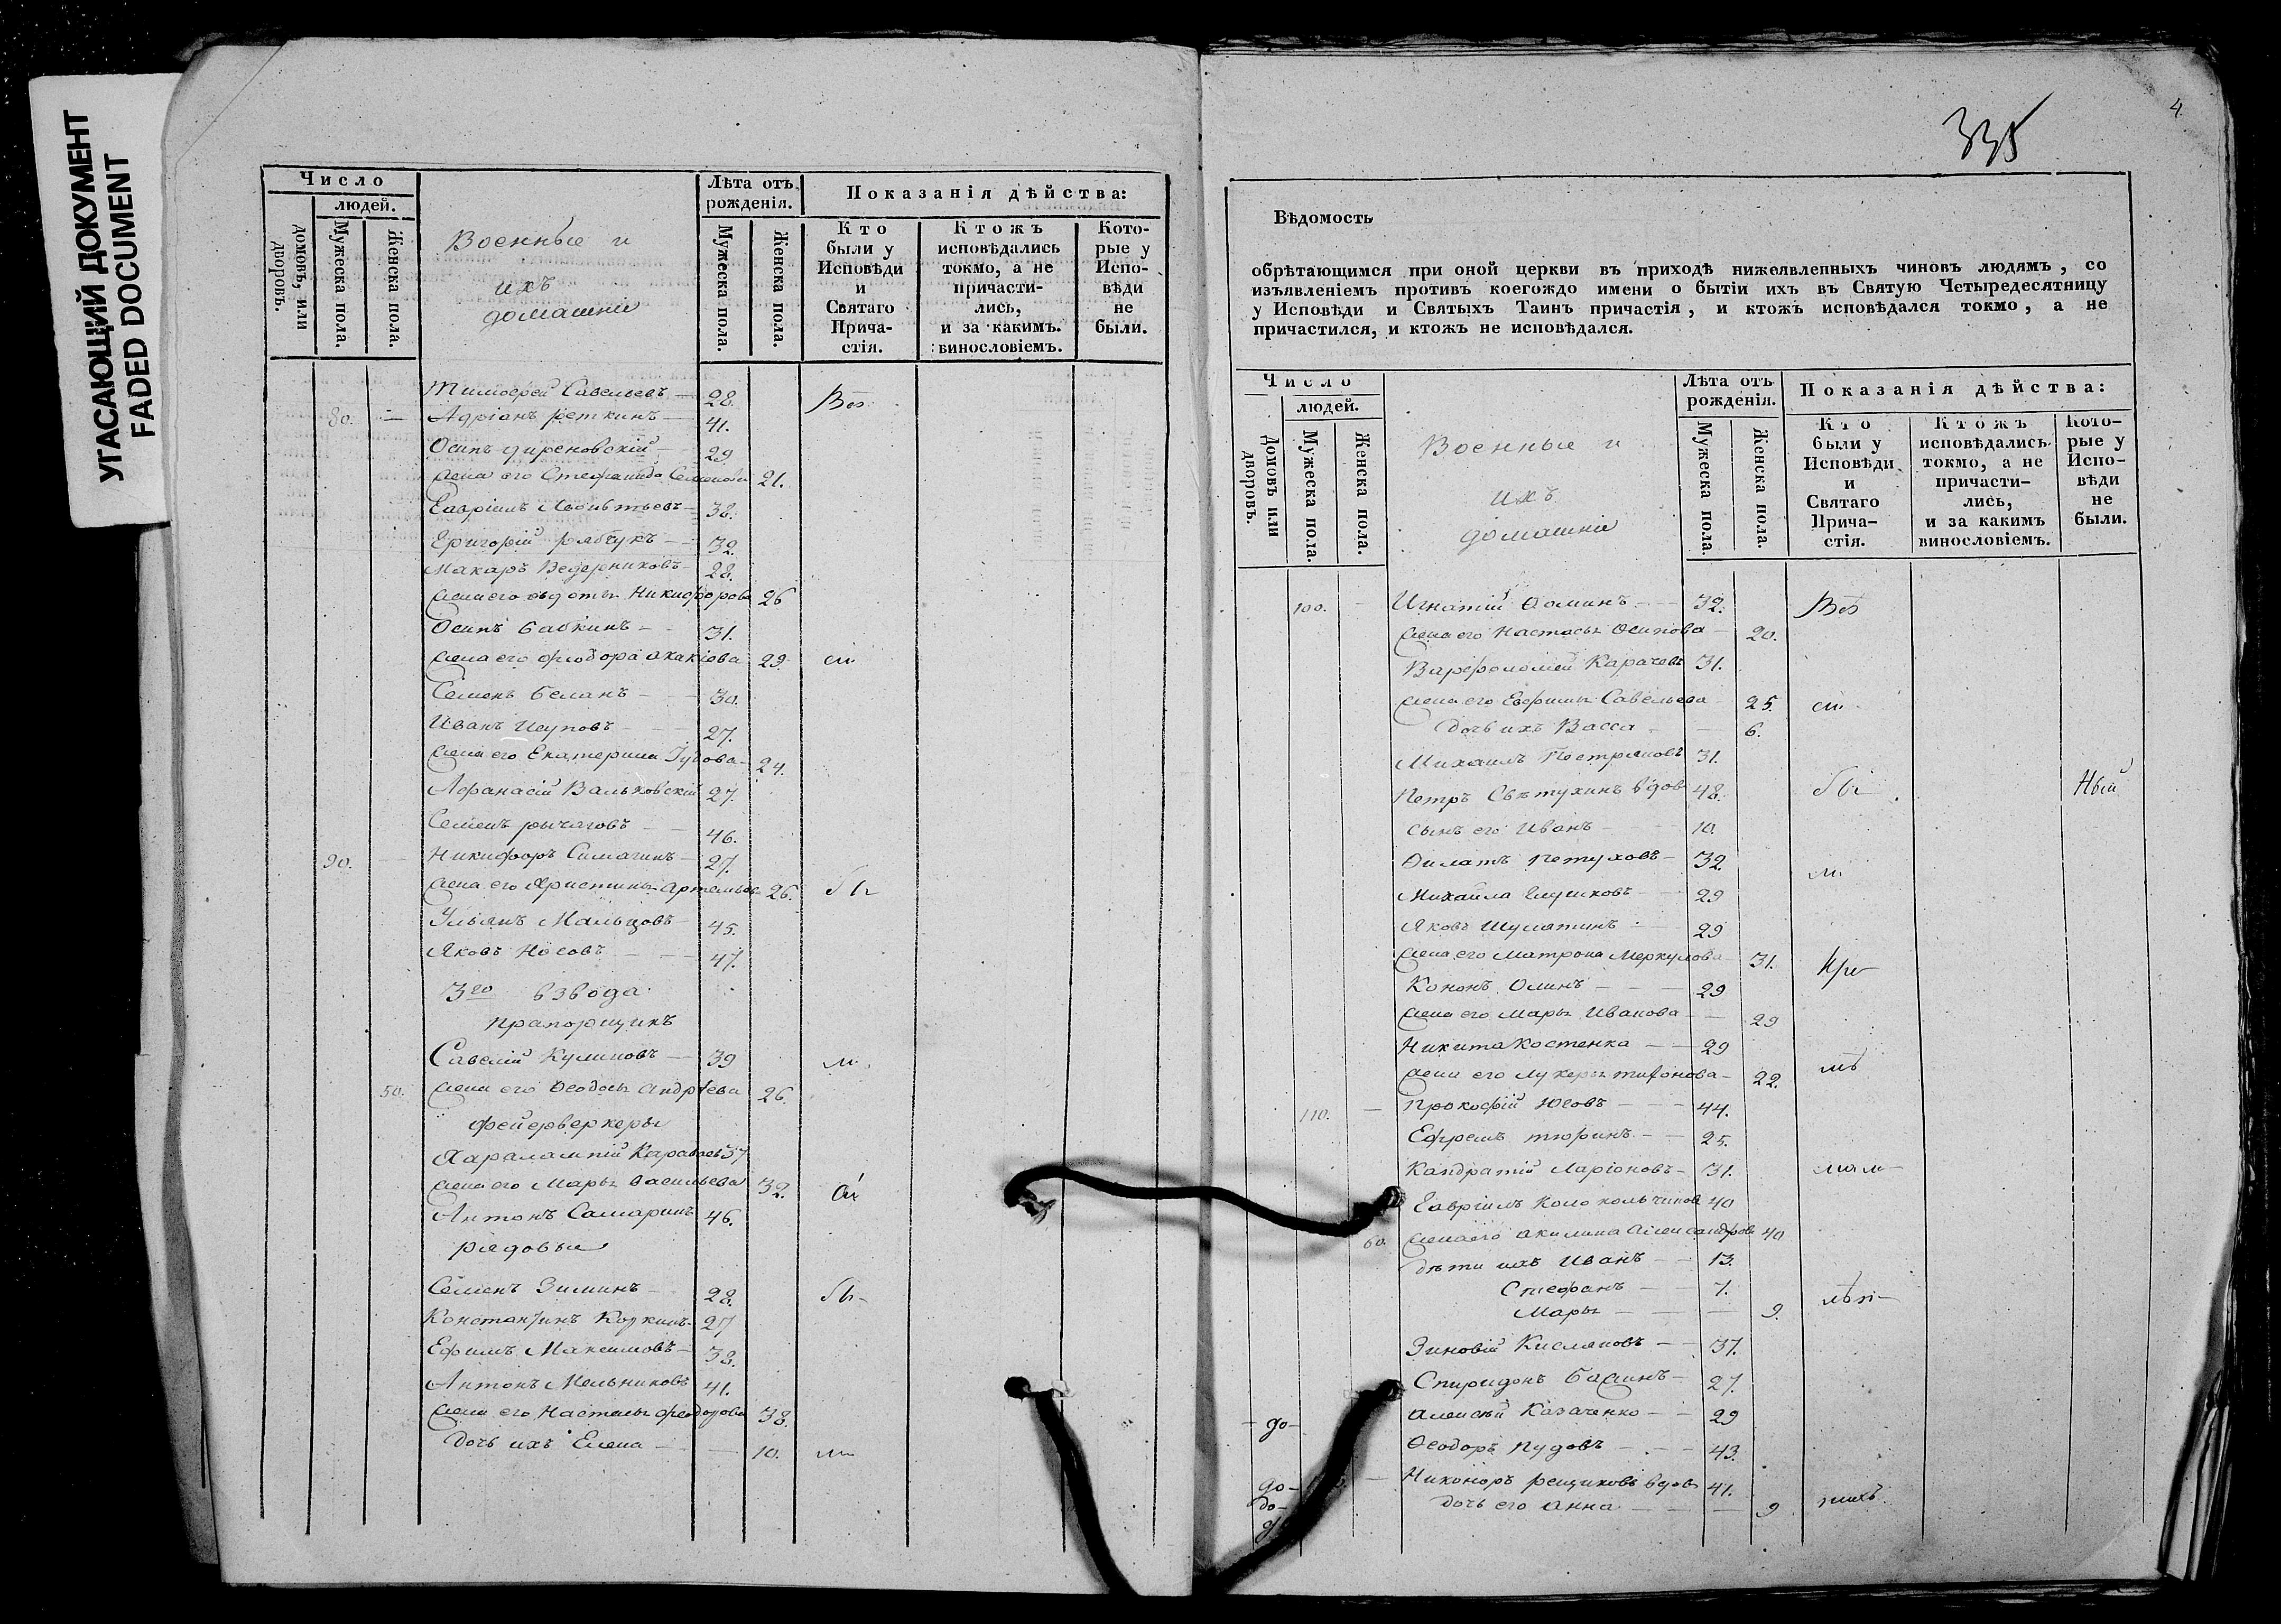 УГАСАЮЩИЙ ДОКУМЕНТ
FADED DOCUMENT
Число
людей.
домовъ, или дворовъ.
Мужеска пола.
Женска пола.
Военные и
ихъ
домашніе
Лѣта отъ рожденія.
Мужеска пола.
Женска пола.
Показанія дѣйства:
Кто были у Исповѣди и Святаго Прича- стія.
Ктожъ исповѣдались токмо, а не причасти- лись, и за какимъ. винословіемъ.
Кото- рые у Испо- вѣди не были.
Тимофей Савельевъ — 28. Всѣ
80. — Адріанъ Реткинъ — 41.
Осипъ 29
жена его Стефанида Семенова 21.
Гавріилъ 38.
Григорій Рябчукъ — 32.
Макаръ Ведерниковъ — 28.
жена его Никифорова 26
Осипъ Бабкинъ — 31.
жена его Феодора Акакіова 29. сіи
Семенъ Беланъ — 30.
Иванъ 27.
жена его Екатерина 24.
Афанасій Вальковскій 27.
Семенъ Рычаговъ — 46.
90. — Никифоръ Симагинъ — 27.
жена его Христинья Артемьева 26. бы
Ульянъ Мальцовъ — 45.
Яковъ Носовъ — 47.
3го взвода
прапорщикъ
Савелій Куликовъ — 39 ли.
50. жена его Ѳеодосья Андрѣева 26.
фейерверкеры
Харалампій Караваевъ 37
жена его Марья Васильева 32.
Антонъ Самаринъ 46.
рядовые
Семенъ Зиминъ — 28. бы-
Константинъ Коркинъ 27
Ефимъ Максимовъ — 38.
Антонъ Мельниковъ 41.
жена его Настасья Феодорова 38.
дочь ихъ Елена — 10. ли
335
4
Вѣдомость
обрѣтающимся при оной церкви въ приходѣ нижеявленныхъ чиновъ людямъ, со
изъявленіемъ противъ коегождо имени о бытіи ихъ въ Святую Четыредесятницу
у Исповѣди и Святыхъ Таинъ причастія, и ктожъ исповѣдался токмо, а не
причастился, и ктожъ не исповѣдался.
Число
людей.
Домовъ или дворовъ.
Мужеска пола.
Женска пола.
Военные и
ихъ
домашніе
Лѣта отъ рожденія.
Мужеска пола.
Женска пола.
Показанія дѣйства:
Кто были у Исповѣди и Святаго Прича- стія.
Ктожъ исповѣдались токмо, а не причасти- лись, и за какимъ винословіемъ.
Кото- рые у Испо- вѣди не были.
100. — Игнатій Ѳоминъ — 32. Всѣ
жена его Настасья Осипова — 20.
Варфоломей Карачовъ 31.
жена его Ефимья Савельева 25. сіи
дочь ихъ Васса — 6.
Михаилъ 31.
Петръ Свѣтухинъ вдов 48. бы Ный
сынъ его Иванъ — 10.
Филатъ Петуховъ — 32. ли
Михайла Глушковъ — 29
Яковъ Шуматинъ — 29
жена его Матрона Меркулова 31.
Кононъ Ѳминъ — 29
жена его Марья Иванова — 29
Никита Костенка — 29
жена его Лукерья Тифонова — 22.
110. — Прокофій Юсовъ — 44.
Ефремъ Тюринъ — 25.
Кандратій Ларіоновъ — 31.
Гавріилъ Колокольчиковъ 40
60. жена его Акилина Александрова 40
дѣти ихъ Иванъ — 13.
Стефанъ — 7.
Марья — 9. лѣт-
Зиновій Кисляковъ — 37.
Спиридонъ Башинъ — 27.
до- Алексѣй Казаченко — 29
Ѳеодоръ Пудовъ — 43.
до- Никоноръ Рещиковъ вдов 41.
до- дочь его Анна — 9